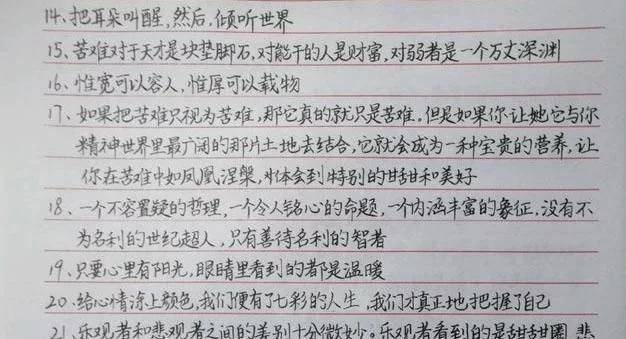 14、把耳朵叫醒,然后,倾听世界
15、苦难对于天才是块垫脚石,对能干的人是财富,对弱者是一个万丈深渊
16、惟宽可以容人,惟厚可以载物
17、如果把苦难只视为苦难,那它真的就只是苦难。但是如果你让她它与你
精神世界里最广阔的那片土地去结合,它就会成为一种宝贵的营养,让
你在苦难中如凤凰涅槃,体会到特别的甘甜和美好
18、一个不容置疑的哲理,一个令人铭心的命题,一个内涵丰富的象征,没有不
为名利的世纪超人,只有善待名利的智者
19、只要心里有阳光,眼睛里看到的都是温暖
20、给心情涂上颜色,我们便有了七彩的人生,我们才真正地把握了自己
21、乐观者和悲观者之间的差别十分微妙。乐观者看到的是甜甜圈,悲